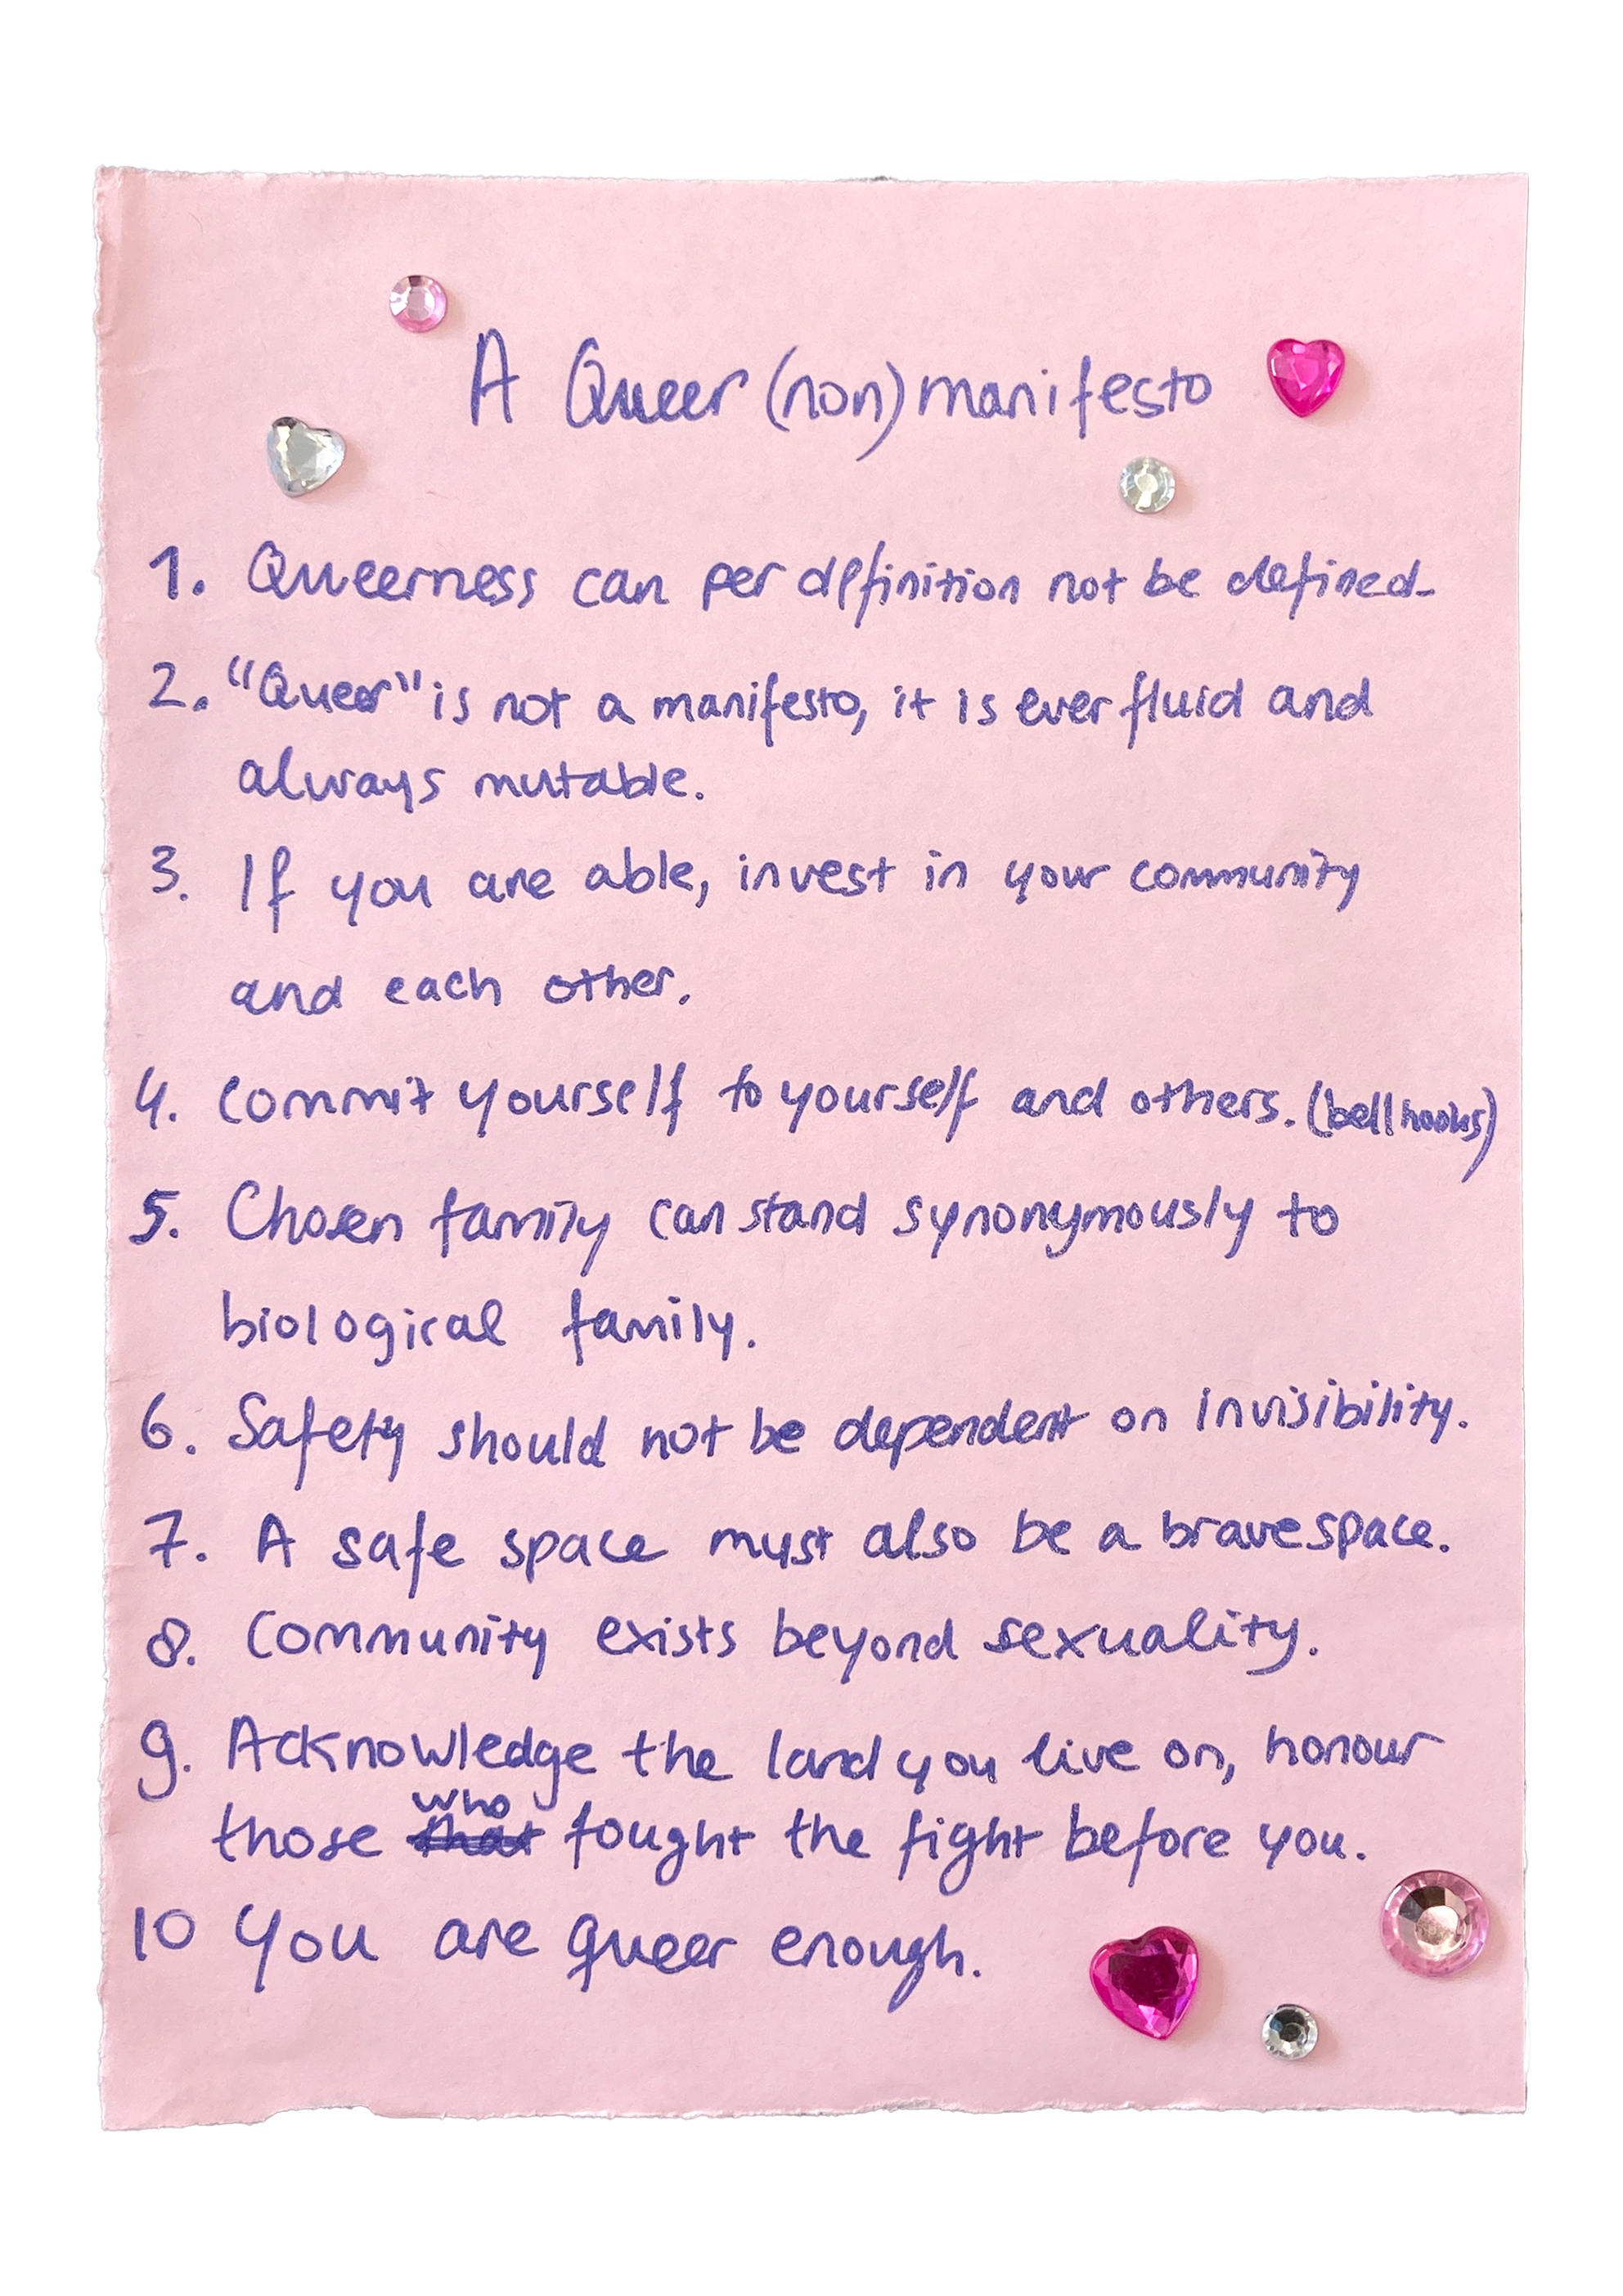 A Queer (non) manifesto
1. Queerness can per definition not be defined.
2. "Queer" is not a manifesto, it is ever fluid and
always mutable.
3. If you are able, invest in your community
and each other.
4. Commit yourself to yourself and others. (bell hooks)
5. Chosen family can stand synonymously to
biological family.
6. Safety should not be dependent on invisibility.
7. A safe space must also be a brave space.
8. Community exists beyond sexuality.
9. Acknowledge the land you live on, honour
who
those that fought the fight before you.
10 You are queer enough.